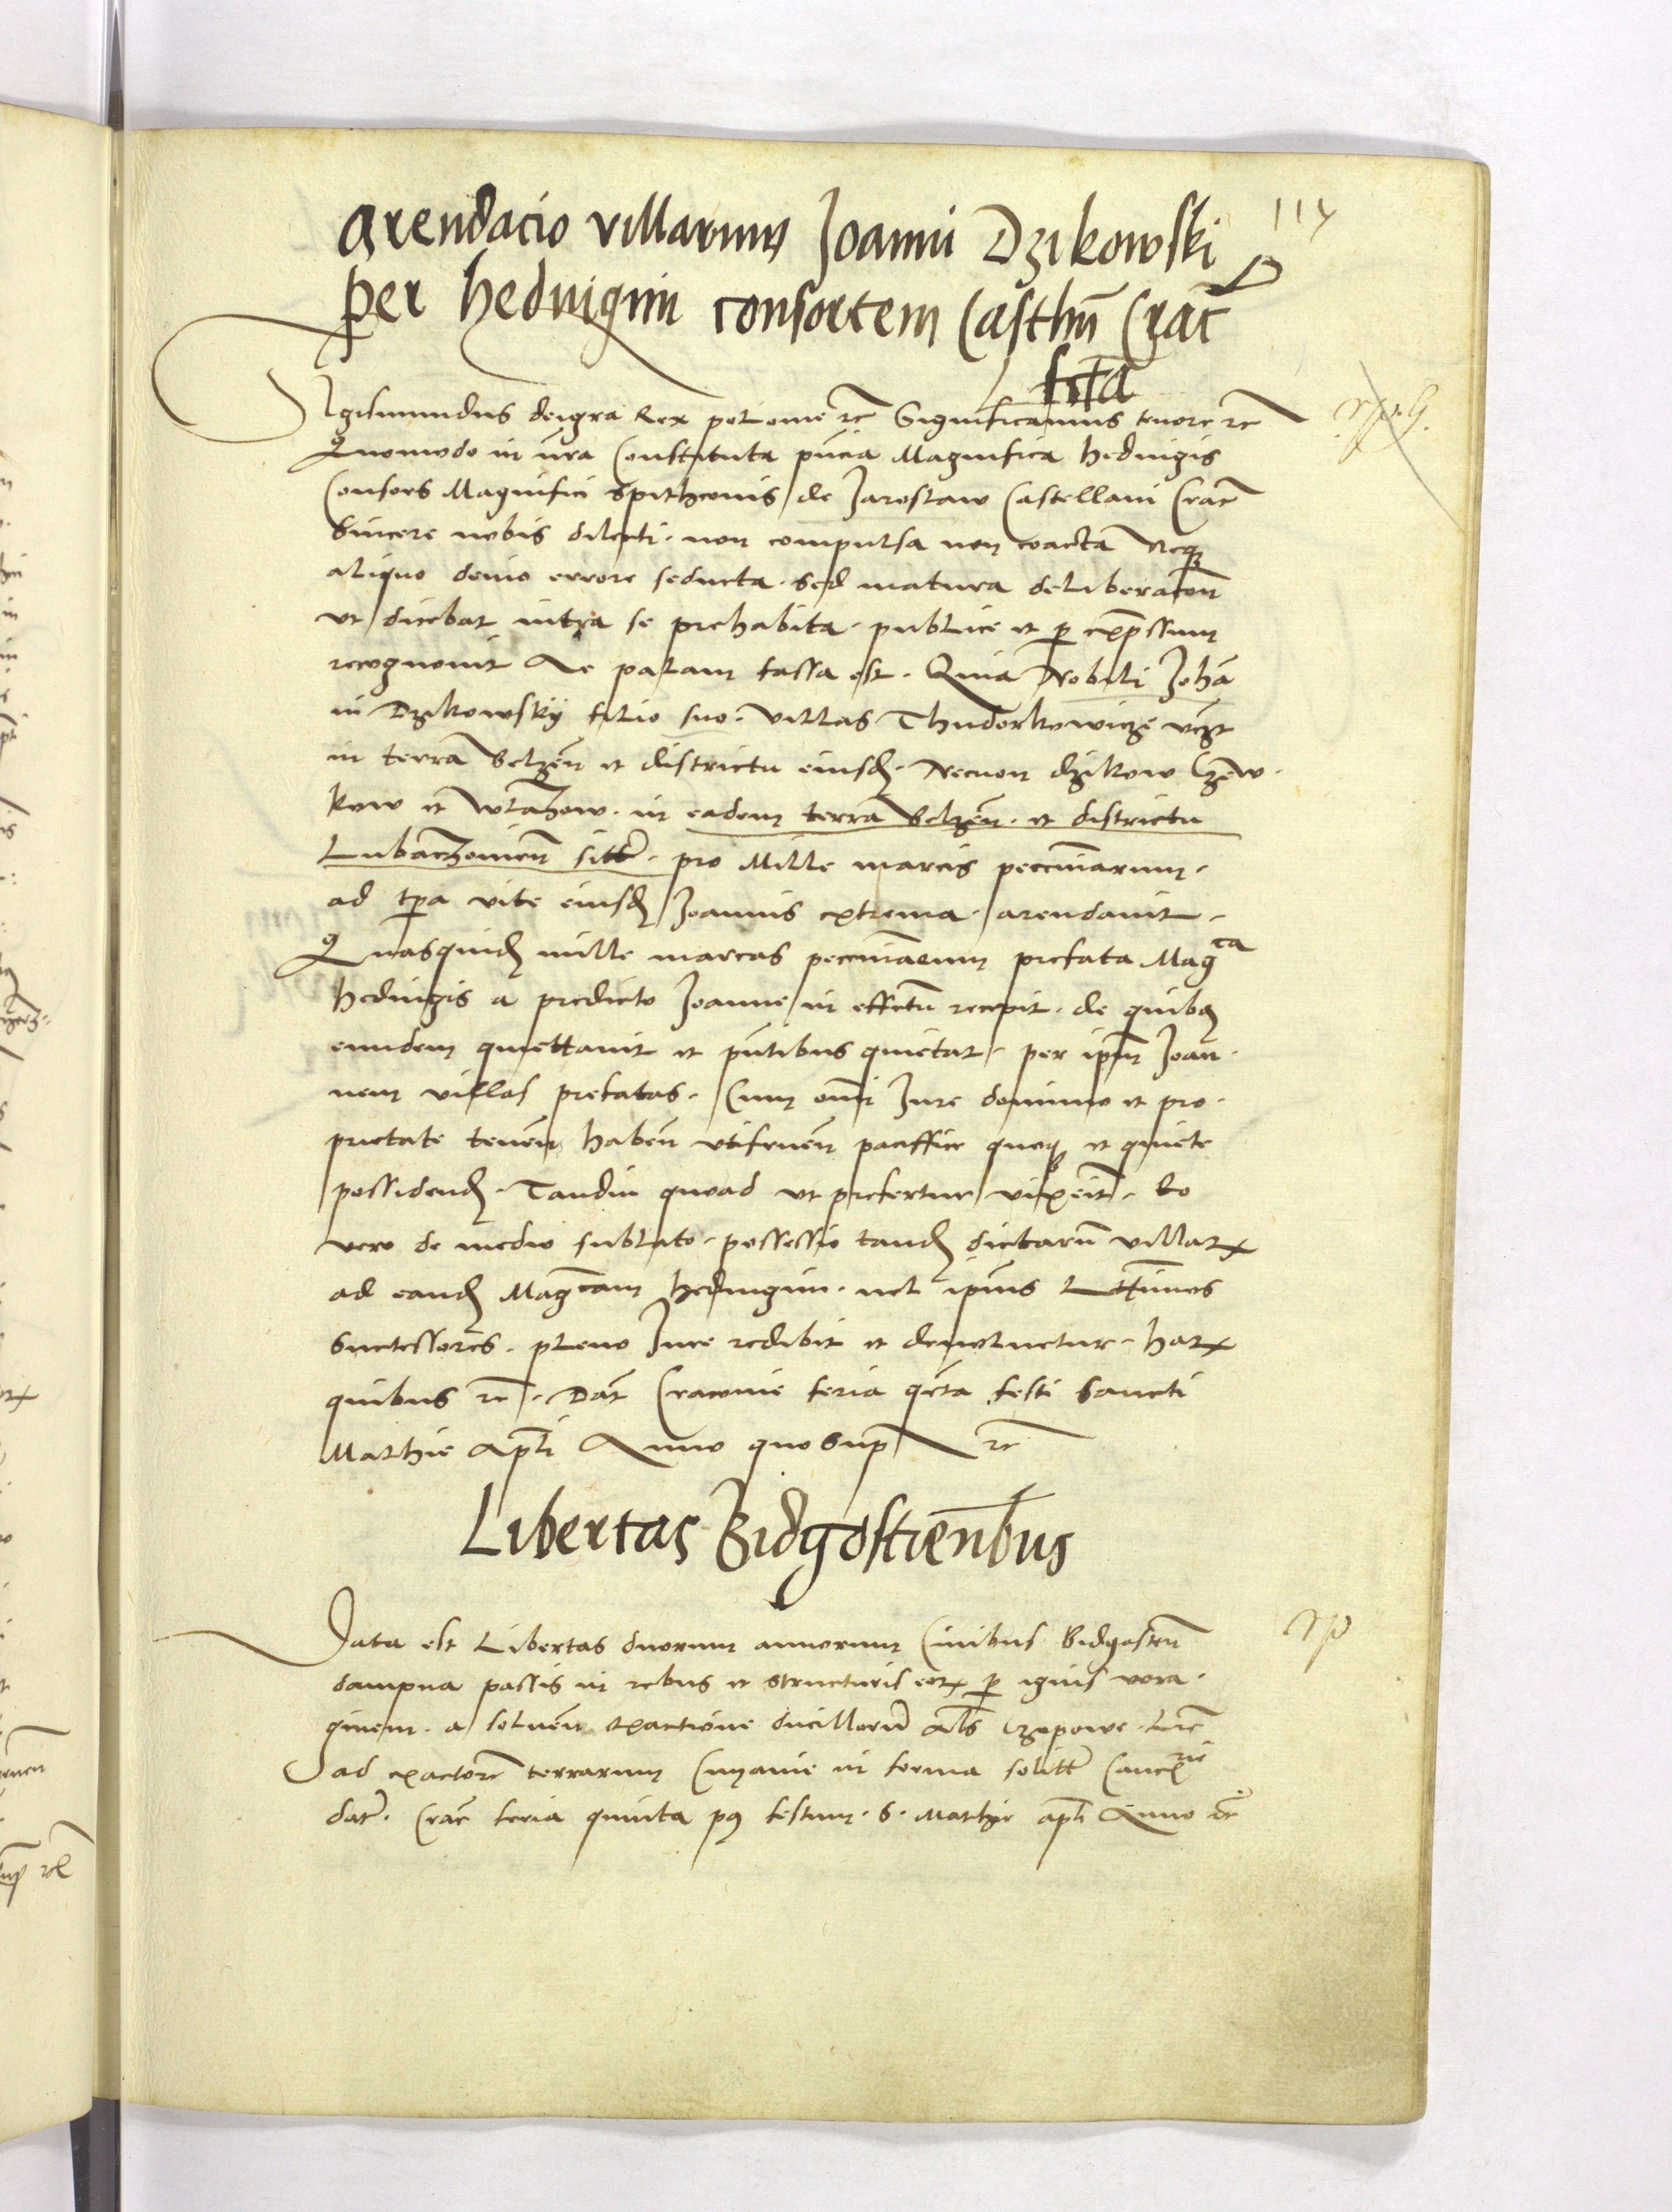 114
Arendacio villarum Joanni Dzikowski
per hedvigim consortem Casthni Crac
fcta
Sigismundus deigra Rex polonie rc Significamus tenore rc
Quomodo in nra Constituta pncia Magnifica hedvigis
Consors Magnifici Spithconis de Jaroslaw Castellani Crac
Sincere nobis dilecti. non compulsa non coacta neqz
aliquo devio errore seducta. sed matura deliberacon
ut dicebat intra se prehabita. publice et p expssum
recognovit Ac palam fassa est. Quia Nobili Johan
ni Dzikowsky filio suo. villas Thudorkowicze
in terra belzen et districtu eiusd. Necnon dzikow Czew.
kow et wlazow. in eadem terra belzen. et districtu
Lubaczovien sitt. pro Mille marcis peccuniarum.
ad tpa vite eiusd Joannis extrema. arendavit.
Quasquid mille marcas peccuniarum prefata Magca
hedvigis a predicto Joanne in effectu recepit. de quibq
eundem quiettavit et pntibus quietat. per ipm Joan.
nem villas prefatas. Cum omi Jure dominio et pro.
prietate tenen haben utifruen paciffice quoqz et quiete
possidend. Tandiu quoad ut prefertur vixerit. Eo
vero de medio sublato. possessio tand dictaru villar
ad eand Magcam hedvigim. vel ipius Lttimos
Successores. pleno Jure redibit et devolvetur. har
quibus rc. Dat Cracovie feria qnta festi Sancti
Mathie Apli Anno quo Sup rc
Libertas Bidgostienbus
Data est Libertas duorum annorum Civibus Bidgostien
dampna passis in rebus et structuris eor p ignis vora.
ginem. a solven exactione ducillaru als Czopowe. Lre
ad exactore terrarum Cuyavie in forma solitt Cancrie
dat. Crac feria quinta pq festum. S. Mathie apli Anno rc